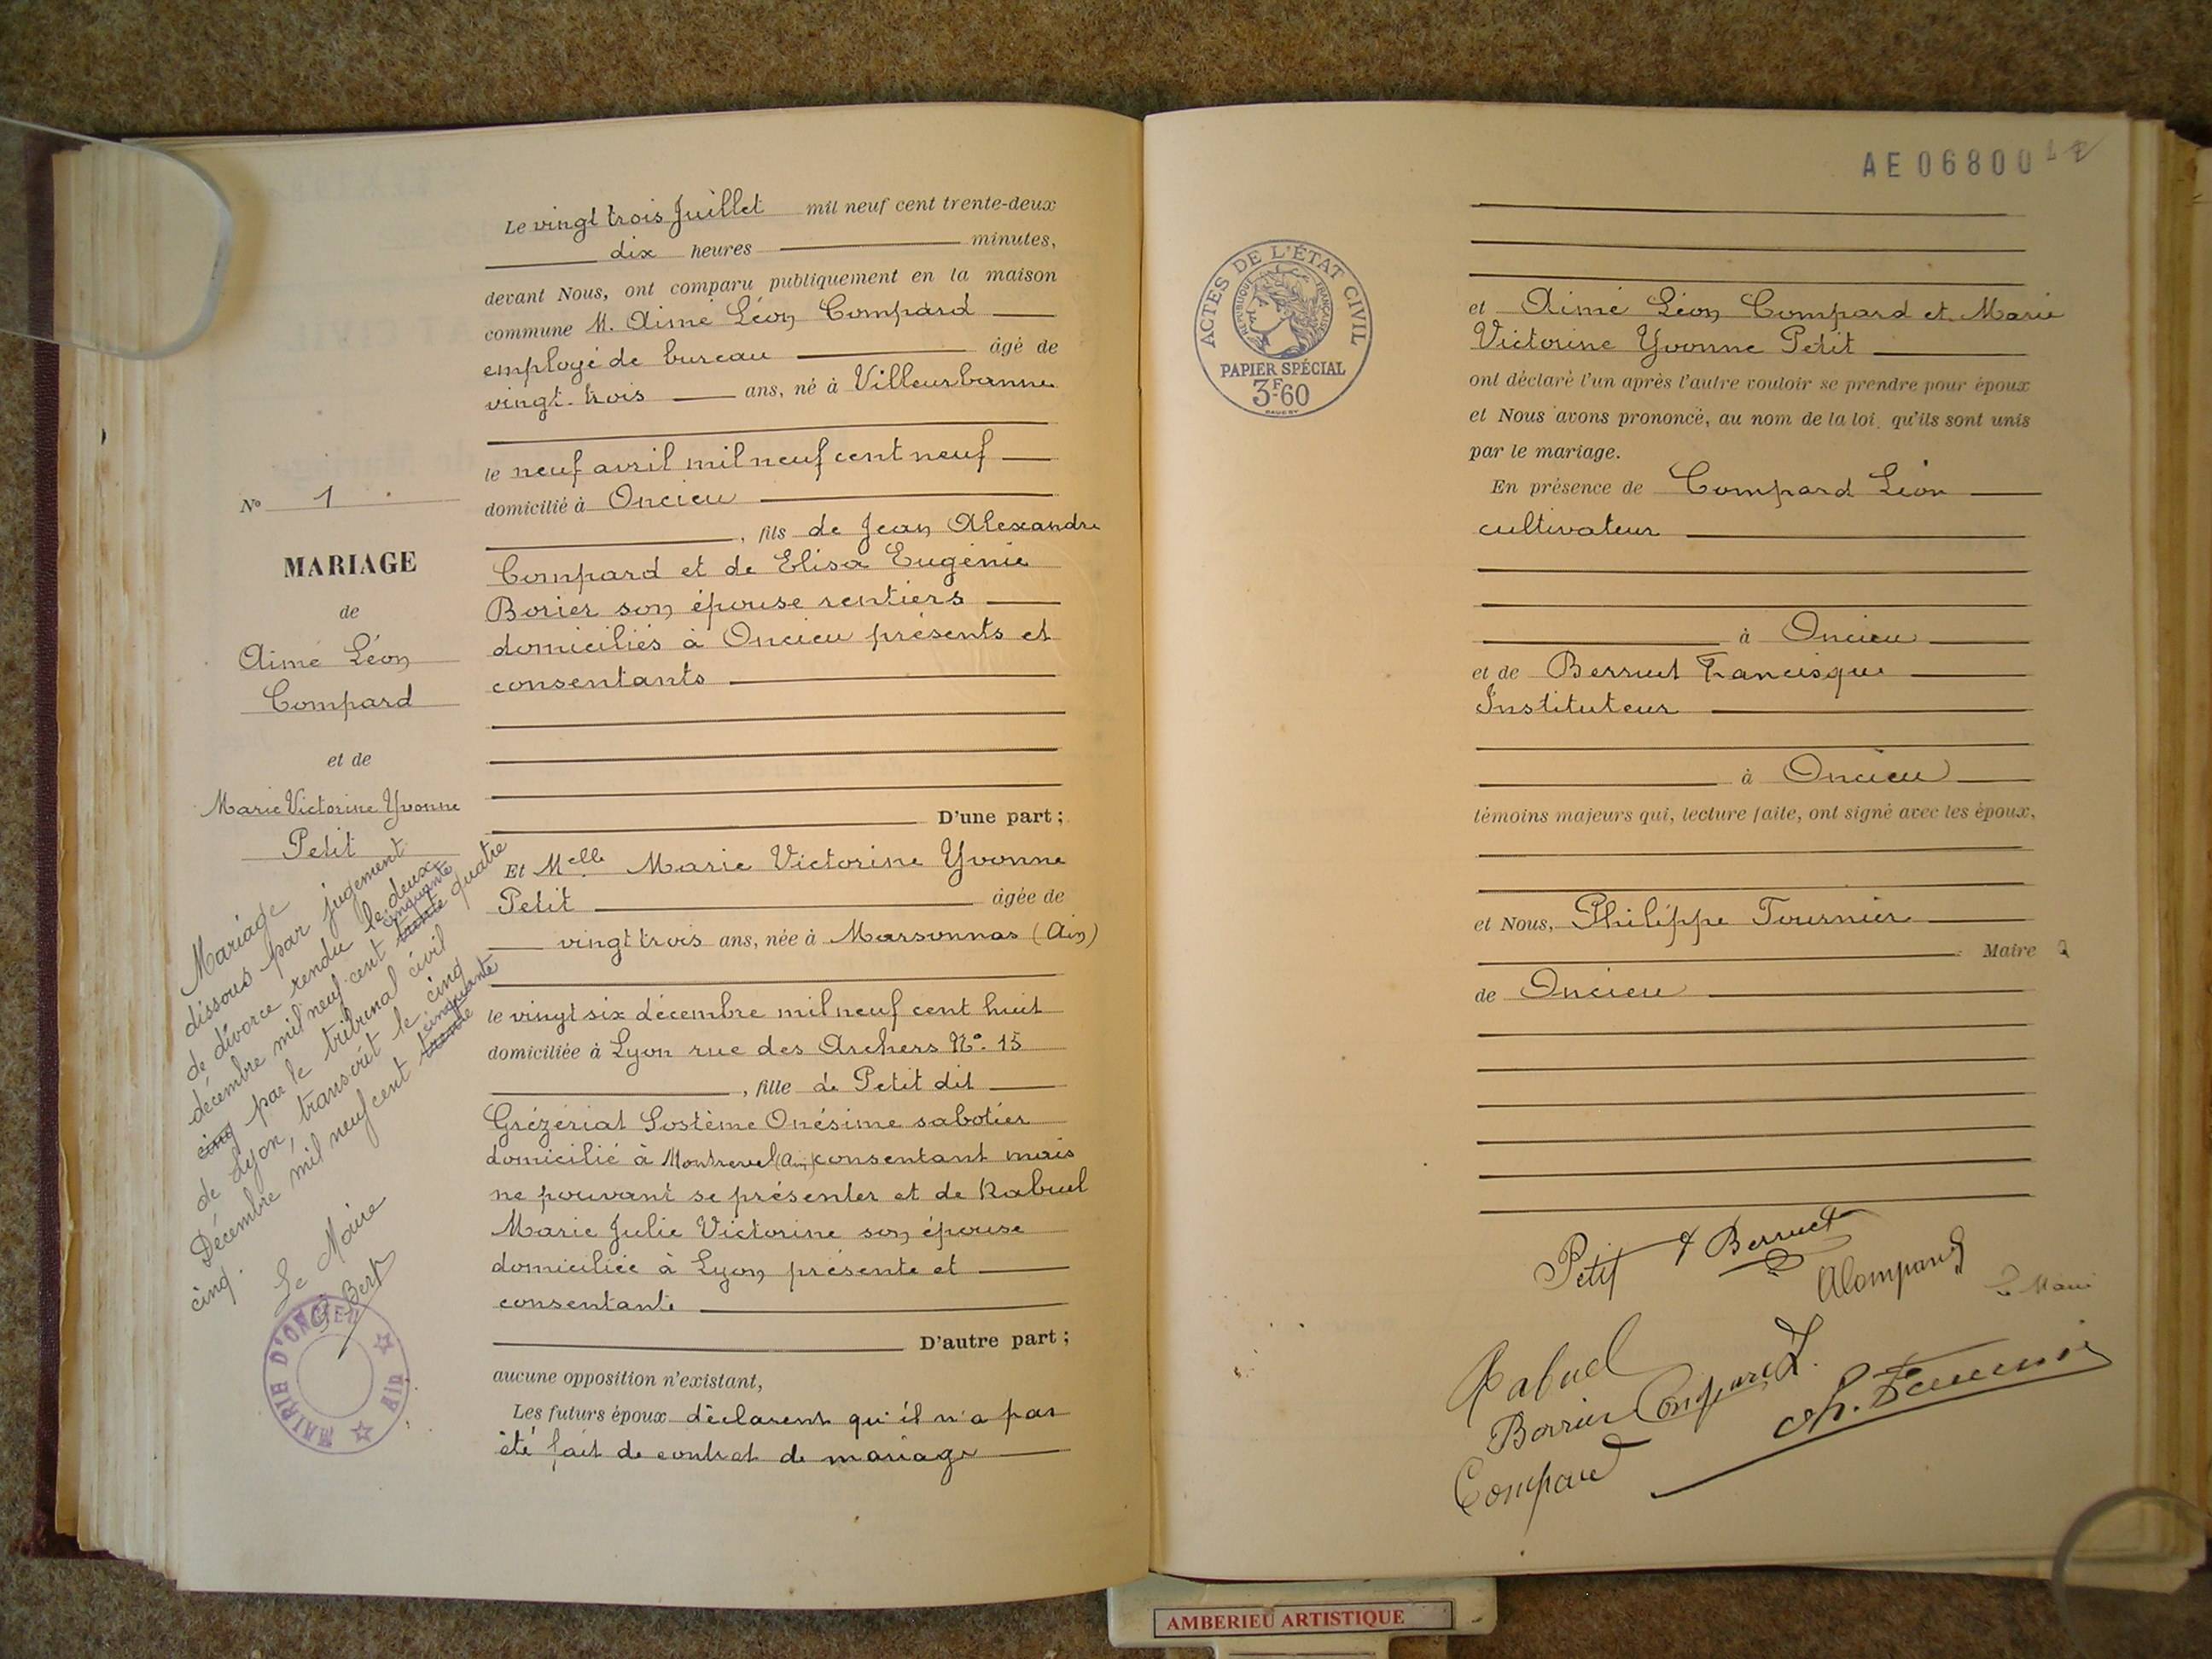 Nº 1
MARIAGE
de
Aimé Léon
Compard
et de
Marie Victorine Yvonne
Petit
Mariage
dissous par jugement
de divorce rendu le deux
décembre mil neuf cent trente cinquante quatre
cinq par le tribunal civil
de Lyon, transcrit le cinq
Décembre mil neuf cent trente cinquante
cinq.
Le Maire
G. Bert
MAIRIE D'ONCIEU
Ain
Le vingt trois Juillet mil neuf cent trente-deux
dix heures minutes,
devant Nous, ont comparu publiquement en la maison
commune M. Aimé Léon Compard
employé de bureau âgé de
vingt-trois ans, né à Villeurbanne
le neuf avril mil neuf cent neuf
domicilié à Oncieu
, fils de Jean Alexandre
Compard et de Elisa Eugénie
Borier son épouse rentiers
domiciliés à Oncieu présents et
consentants
D'une part;
Et Melle Marie Victorine Yvonne
Petit âgée de
vingt trois ans, née à Marsonnas (Ain)
le vingt six décembre mil neuf cent huit
domiciliée à Lyon rue des Archers Nº 15
, fille de Petit dit
Grézériat Sostème Onésime sabotier
domicilié à Montrevel (Ain) consentant mais
ne pouvant se présenter et de Rabuel
Marie Julie Victorine son épouse
domiciliée à Lyon présente et
consentante
D'autre part;
aucune opposition n'existant,
Les futurs époux déclarent qu'il n'a pas
été fait de contrat de mariage
AE 06800
ACTES DE L'ÉTAT CIVIL
RÉPUBLIQUE FRANÇAISE
PAPIER SPÉCIAL
3F60
et Aimé Léon Compard et Marie
Victorine Yvonne Petit
ont déclaré l'un après l'autre vouloir se prendre pour époux
et Nous avons prononcé, au nom de la loi, qu'ils sont unis
par le mariage.
En présence de Compard Léon
cultivateur
à Oncieu
et de Berruet Francisque
Instituteur
à Oncieu
témoins majeurs qui, lecture faite, ont signé avec les époux,
et Nous, Philippe Tournier
Maire
de Oncieu
Petit
F Berruet
A Compard
Le Maire
Rabuel
Borrier Compard L.
Ph. Tournier
Compard
AMBERIEU ARTISTIQUE